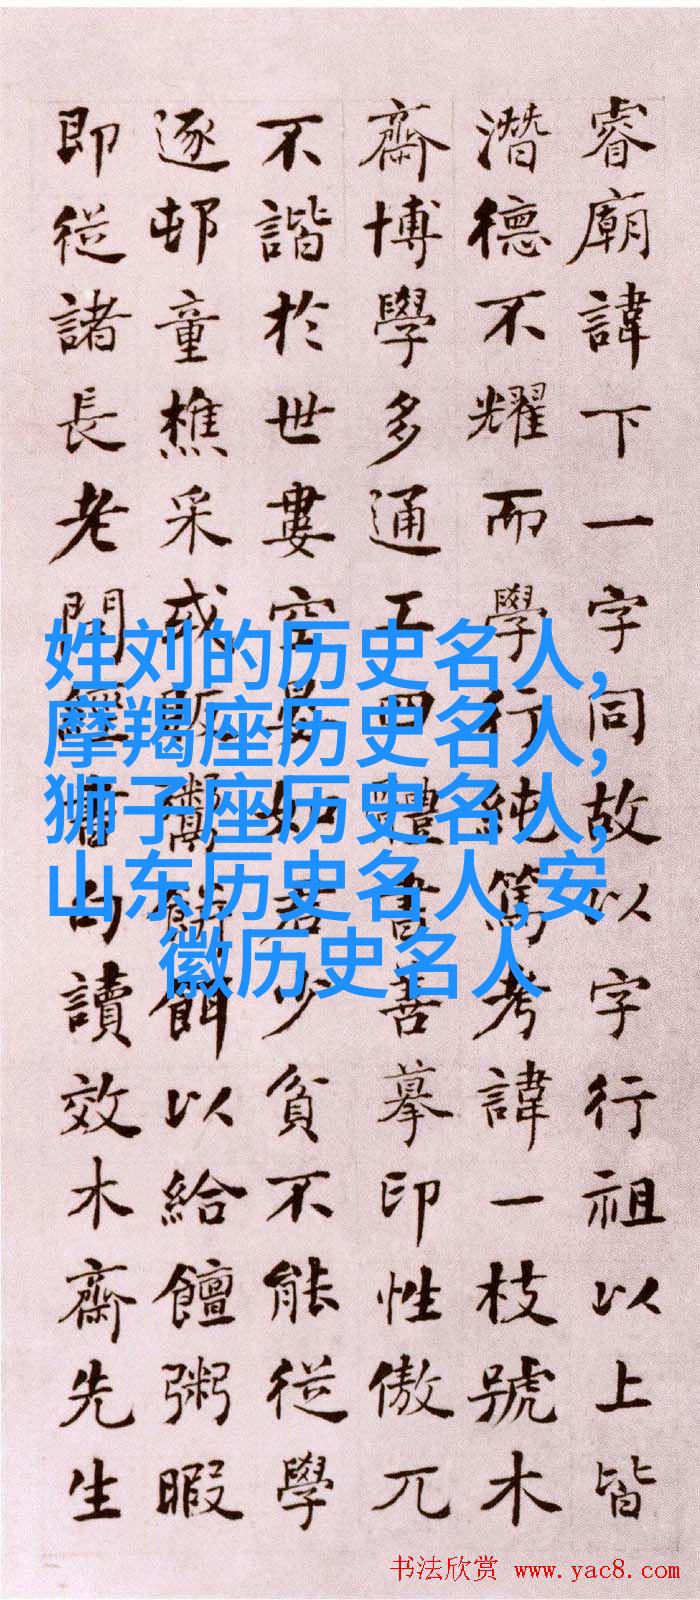 睿廟諱下一字同故以字行祖以上皆
潛德不耀而學行純篤考諱一枝號木
齋博學多通工四體書善摹印性傲兀
不諧於世婁空晏如君少貧不能從學
逐邨童樵采或販鬻餳餌以給饘粥暇
即從諸長老問經書句讀效木齋先生
姓刘的历史名人,
摩羯座历史名人,
狮子座历史名人,
山东历史名人,安
徽历史名人
书法欣赏 www.yac8.com